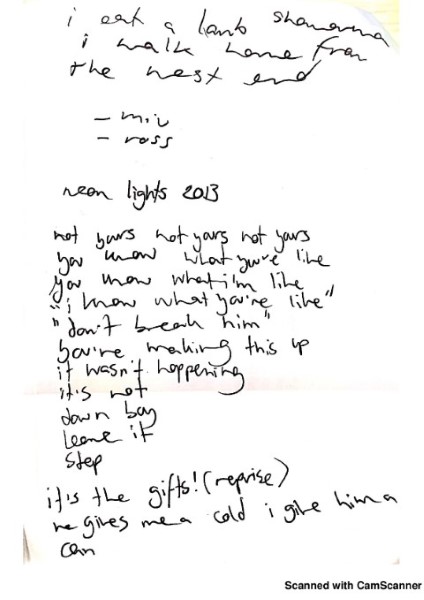 i eat a lamb shawarma
i walk home from
the west end
- miu
- ross
neon lights 2013
not yours not yours not yours
you know what you're like
you know what i'm like
"i know what you're like"
"don't break him"
you're making this up
it wasn't happening
it's not
down boy
leave it
step
it's the gifts! (reprise)
he gives me a cold i give him a
can
Scanned with CamScanner